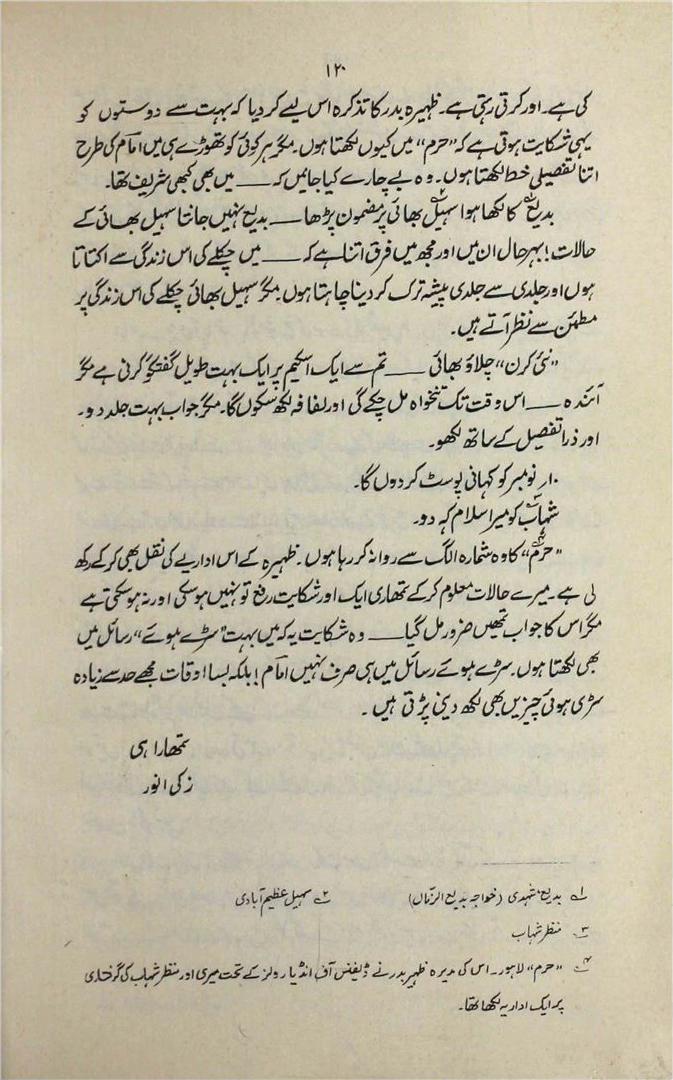 ۱۲۰
کی ہے۔ اور کرتی رہتی ہے۔ ظہیرہ بدر کا تذکرہ اس لیے کر دیا کہ بہت سے دوستوں کو
یہی شکایت ہوتی ہے کہ "حرم" میں کیوں لکھتا ہوں۔ مگر ہر کوئی کو تھوڑے ہی میں امام کی طرح
اتنا تفصیلی خط لکھتا ہوں۔ وہ بے چارے کیا جانیں کہ ـــ میں بھی کبھی شریف تھا۔
بدیع۱ کا لکھا ہوا سہیل۲ بھائی پر مضمون پڑھا ـــ بدیع نہیں جانتا سہیل بھائی کے
حالات! بہرحال ان میں اور مجھ میں فرق اتنا ہے کہ ـــ میں چکلے کی اس زندگی سے اکتاتا
ہوں اور جلدی سے جلدی پیشہ ترک کر دینا چاہتا ہوں۔ مگر سہیل بھائی چکلے کی اس زندگی پر
مطمئن سے نظر آتے ہیں۔
"نئی کرن" چلاؤ بھائی ـــ تم سے ایک اسکیم پر ایک بہت طویل گفتگو کرنی ہے مگر
آئندہ ـــ اس وقت تک تنخواہ مل چکے گی اور لفافہ لکھ سکوں گا۔ مگر جواب بہت جلد دو۔
اور ذرا تفصیل کے ساتھ لکھو۔
۱۰؍ نومبر کو کہانی پوسٹ کر دوں گا۔
شہاب۳ کو میرا سلام کہہ دو۔
"حرم۴" کا وہ شمارہ الگ سے روانہ کر رہا ہوں۔ ظہیرہ کے اس اداریے کی نقل بھی کر کے رکھ
لی ہے۔ میرے حالات معلوم کر کے تمھاری ایک اور شکایت رفع تو نہیں ہو سکی اور نہ ہو سکتی ہے
مگر اس کا جواب تمھیں ضرور مل گیا ـــ وہ شکایت یہ کہ میں بہت "سڑے ہوئے" رسائل میں
بھی لکھتا ہوں۔ سڑے ہوئے رسائل میں ہی صرف نہیں امام! بلکہ بسا اوقات مجھے حد سے زیادہ
سڑی ہوئی چیزیں بھی لکھ دینی پڑتی ہیں۔
تمھارا ہی
زکی انور
۱؎ بدیع مشہدی (خواجہ بدیع الزماں) ۲؎ سہیل عظیم آبادی
۳؎ منظر شہاب
۴؎ "حرم" لاہور۔ اس کی مدیرہ ظہیر بدر نے ڈیفنس آف انڈیا رولز کے تحت میری اور منظر شہاب کی گرفتاری
پر ایک اداریہ لکھا تھا۔